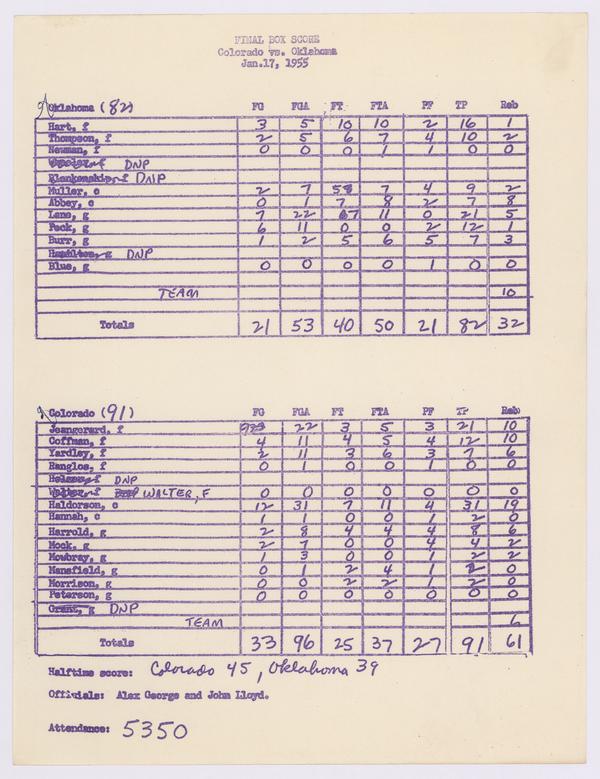 FINAL BOX SCORE
Colorado vs. Oklahoma
Jan.17, 1955
Oklahoma (82) FG FGA FT FTA PF TP Reb
Hart, f 3 5 10 10 2 16 1
Thompson, f 2 5 6 7 4 10 2
Newman, f 0 0 0 1 1 0 0
DNP
Blankenship, f DNP
Muller, c 2 7 5 7 4 9 2
Abbey, c 0 1 7 8 2 7 8
Lane, g 7 22 7 11 0 21 5
Peck, g 6 11 0 0 2 12 1
Burr, g 1 2 5 6 5 7 3
Hamilton, g DNP
Blue, g 0 0 0 0 1 0 0
TEAM 10
Totals 21 53 40 50 21 82 32
Colorado (91) FG FGA FT FTA PF TP Reb
Jeangerard, f 9 22 3 5 3 21 10
Coffman, f 4 11 4 5 4 12 10
Yardley, f 2 11 3 6 3 7 6
Ranglos, f 0 1 0 0 1 0 0
DNP
WALTER, F 0 0 0 0 0 0 0
Haldorson, c 12 31 7 11 4 31 19
Hannah, c 1 1 0 0 1 2 0
Harrold, g 2 8 4 4 4 8 6
Mock, g 2 7 0 0 4 4 2
Mowbray, g 1 3 0 0 1 2 2
Mansfield, g 0 1 2 4 1 2 0
Morrison, g 0 0 2 2 1 2 0
Peterson, g 0 0 0 0 0 0 0
Grant, g DNP
TEAM 6
Totals 33 96 25 37 27 91 61
Halftime score: Colorado 45, Oklahoma 39
Officials: Alex George and John Lloyd.
Attendance: 5350